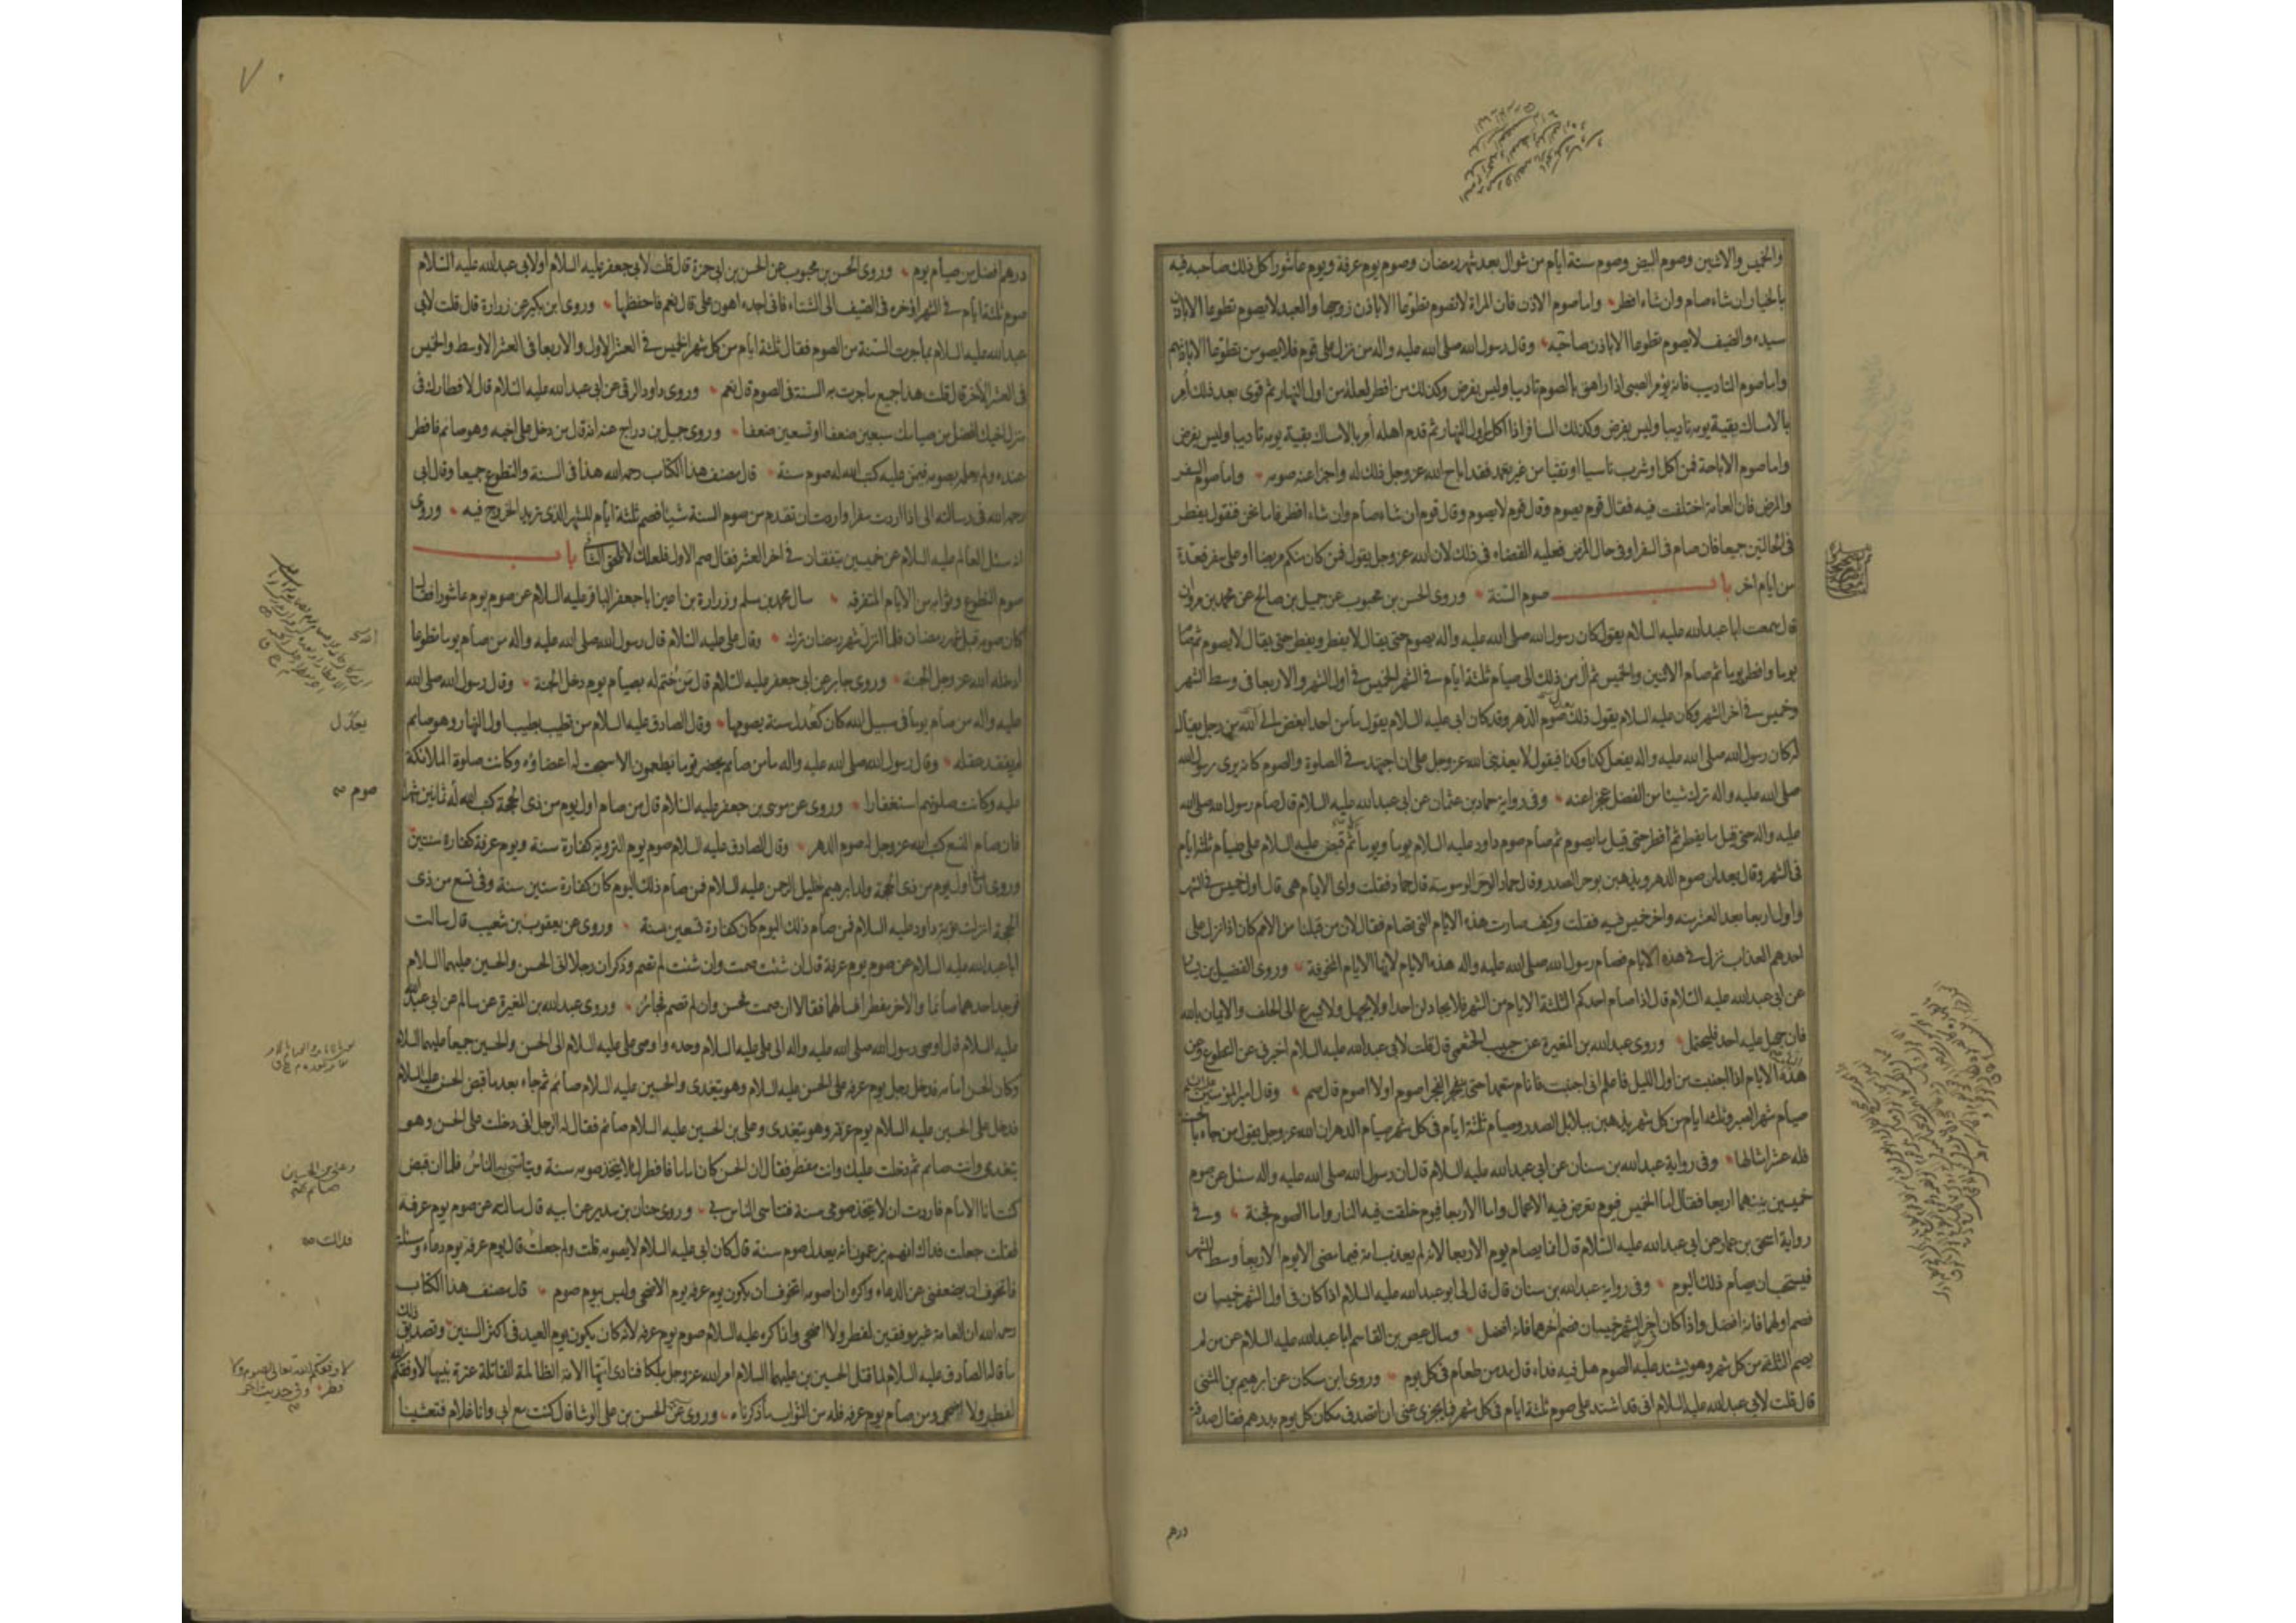 والخميس والاثنين وصوم البيض وصوم ستة ايام من شوال بعد شهر رمضان وصوم يوم عرفة ويوم عاشورا كل ذلك صاحبه فيه
بالخيار ان شاء صام وان شاء افطر واما صوم الاذن فان المراة لا تصوم تطوعا الا باذن زوجها والعبد لا يصوم تطوعا الا باذن
سيده والضيف لا يصوم تطوعا الا باذن صاحبه وقال رسول الله صلى الله عليه واله من نزل على قوم فلا يصومن تطوعا الا باذنهم
واما صوم التاديب فانه يؤمر الصبى اذا راهق بالصوم تاديبا وليس بفرض وكذلك من افطر لعلة من اول النهار ثم قوى بعد ذلك أمر
بالامساك بقية يومه تاديبا وليس بفرض وكذلك المسافر اذا اكل اول النهار ثم قدم اهله أمر بالامساك بقية يومه تاديبا وليس بفرض
واما صوم الاباحة فمن اكل او شرب ناسيا او تقيا من غير تعمد فقد اباح الله عز وجل ذلك له واجزا عنه صومه واما صوم السفر
والمرض فان العامة اختلفت فيه فقال قوم يصوم وقال قوم لا يصوم وقال قوم ان شاء صام وان شاء افطر فاما نحن فنقول يفطر
فى الحالتين جميعا فان صام فى السفر او فى حال المرض فعليه القضاء فى ذلك لان الله عز وجل يقول فمن كان منكم مريضا او على سفر فعدة
من ايام اخر باب صوم السنة وروى الحسن بن محبوب عن جميل بن صالح عن محمد بن مروان
قال سمعت ابا عبد الله عليه السلام يقول كان رسول الله صلى الله عليه واله يصوم حتى يقال لا يفطر ويفطر حتى يقال لا يصوم ثم صام
يوما وافطر يوما ثم صام الاثنين والخميس ثم آل من ذلك الى صيام ثلثة ايام فى الشهر الخميس فى اول الشهر والاربعا فى وسط الشهر
وخميس فى آخر الشهر وكان عليه السلام يقول ذلك صوم الدهر وقد كان ابى عليه السلام يقول ما من احد ابغض الى الله من رجل يقال
له كان رسول الله صلى الله عليه واله يفعل كذا وكذا فيقول لا يعذبنى الله عز وجل على ان اجتهد فى الصلوة والصوم كانه يرى رسول الله
صلى الله عليه واله ترك شيئا من الفضل عجزا عنه وفى رواية حماد بن عثمان عن ابى عبد الله عليه السلام قال صام رسول الله صلى الله
عليه واله حتى قيل ما يفطر ثم افطر حتى قيل ما يصوم ثم صام صوم داود عليه السلام يوما ويوما ثم قبض عليه السلام على صيام ثلثة ايام
فى الشهر وقال يعدلن صوم الدهر ويذهبن بوحر الصدر وقال حماد الوحر الوسوسة قال حماد فقلت واى الايام هى قال اول خميس فى الشهر
واول اربعا بعد العشر منه واخر خميس فيه فقلت وكيف صارت هذه الايام التى تصام فقال لان من قبلنا من الامم كان اذا نزل على
احدهم العذاب نزل فى هذه الايام فصام رسول الله صلى الله عليه واله هذه الايام لانها الايام المخوفة وروى الفضيل بن يسار
عن ابى عبد الله عليه السلام قال اذا صام احدكم الثلثة الايام من الشهر فلا يجادلن احدا ولا يجهل ولا يسرع الى الحلف والايمان بالله
فان جهل عليه احد فليحتمل وروى عبد الله بن المغيرة عن حبيب الخثعمى قال قلت لابى عبد الله عليه السلام اخبرنى عن التطوع وعن
هذه الايام اذا اجنبت من اول الليل فاعلم انى اجنبت فانام متعمدا حتى ينفجر الفجر اصوم او لا اصوم قال صم وقال امير المؤمنين
صيام شهر الصبر وثلثة ايام من كل شهر يذهبن ببلابل الصدر وصيام ثلثة ايام فى كل شهر صيام الدهر ان الله عز وجل يقول من جاء بالحسنة
فله عشر امثالها وفى رواية عبد الله بن سنان عن ابى عبد الله عليه السلام قال ان رسول الله صلى الله عليه واله سئل عن صوم
خميسين بينهما اربعا فقال اما الخميس فيوم تعرض فيه الاعمال واما الاربعا فيوم خلقت فيه النار واما الصوم فجنة وفى
رواية اسحق بن عمار عن ابى عبد الله عليه السلام قال انما يصام يوم الاربعا لانه لم يعذب امة فيما مضى الا يوم الاربعا وسط الشهر
فيستحب ان يصام ذلك اليوم وفى رواية عبد الله بن سنان قال قال لى ابو عبد الله عليه السلام اذا كان فى اول الشهر خميسان
فصم اولهما فانه افضل واذا كان آخر الشهر خميسان فصم آخرهما فانه افضل وسال عيص بن القاسم ابا عبد الله عليه السلام عن من لم
يصم الثلثة من كل شهر وهو يشتد عليه الصوم هل فيه فداء قال مد من طعام فى كل يوم وروى ابن مسكان عن ابرهيم بن المثنى
قال قلت لابى عبد الله عليه السلام انى قد اشتد على صوم ثلثة ايام فى كل شهر فما يجزى عنى ان اتصدق مكان كل يوم بدرهم فقال صدقة
درهم
٧٠
درهم افضل من صيام يوم وروى الحسن بن محبوب عن الحسن بن ابى حمزة قال قلت لابى جعفر عليه السلام او لابى عبد الله عليه السلام
صوم ثلثة ايام فى الشهر اؤخره فى الصيف الى الشتاء فانى اجده اهون على قال نعم فاحفظها وروى ابن بكير عن زرارة قال قلت لابى
عبد الله عليه السلام بما جرت السنة من الصوم فقال ثلثة ايام من كل شهر الخميس فى العشر الاول والاربعا فى العشر الاوسط والخميس
فى العشر الآخر قال قلت هذا جميع ما جرت به السنة فى الصوم قال نعم وروى داود الرقى عن ابى عبد الله عليه السلام قال لافطارك فى
منزل اخيك افضل من صيامك سبعين ضعفا او تسعين ضعفا وروى جميل بن دراج عنه انه قال من دخل على اخيه وهو صائم فافطر
عنده ولم يعلمه بصومه فيمن عليه كتب الله له صوم سنة قال مصنف هذا الكتاب رحمه الله هذا فى السنة والتطوع جميعا وقال ابى
رحمه الله فى رسالته الى اذا اردت سفرا واردت ان تقدم من صوم السنة شيئا فصم ثلثة ايام للشهر الذى تريد الخروج فيه وروى
انه سئل العالم عليه السلام عن خميسين يتفقان فى اخر العشر فقال صم الاول فلعلك لا تلحق الثانى باب
صوم التطوع وثوابه من الايام المتفرقة سال محمد بن مسلم وزرارة بن اعين ابا جعفر الباقر عليه السلام عن صوم يوم عاشورا فقال
كان صومه قبل شهر رمضان فلما انزل شهر رمضان ترك وقال على عليه السلام قال رسول الله صلى الله عليه واله من صام يوما تطوعا
ادخله الله عز وجل الجنة وروى جابر عن ابى جعفر عليه السلام قال من ختم له بصيام يوم دخل الجنة وقال رسول الله صلى الله
عليه واله من صام يوما فى سبيل الله كان كعدل سنة يصومها وقال الصادق عليه السلام من تطيب بطيب اول النهار وهو صايم
لم يفقد عقله وقال رسول الله صلى الله عليه واله ما من صايم يحضر قوما يطعمون الا سبحت له اعضاؤه وكانت صلوة الملائكة
عليه وكانت صلوتهم استغفارا وروى عن موسى بن جعفر عليه السلام قال من صام اول يوم من ذى الحجة كتب الله له ثمانين شهرا
فان صام التسع كتب الله عز وجل له صوم الدهر وقال الصادق عليه السلام صوم يوم التروية كفارة سنة ويوم عرفة كفارة سنتين
وروى ان فى اول يوم من ذى الحجة ولد ابرهيم خليل الرحمن عليه السلام فمن صام ذلك اليوم كان كفارة ستين سنة وفى تسع من ذى
الحجة انزلت توبة داود عليه السلام فمن صام ذلك اليوم كان كفارة تسعين سنة وروى عن يعقوب بن شعيب قال سالت
ابا عبد الله عليه السلام عن صوم يوم عرفة قال ان شئت صمت وان شئت لم تصم وذكر ان رجلا اتى الحسن والحسين عليهما السلام
فوجد احدهما صائما والاخر مفطرا فسالهما فقالا ان صمت فحسن وان لم تصم فجائز وروى عبد الله بن المغيرة عن سالم عن ابى عبد الله
عليه السلام قال اوصى رسول الله صلى الله عليه واله الى على عليه السلام وحده واوصى على عليه السلام الى الحسن والحسين جميعا عليهما السلام
وكان الحسن امامه فدخل رجل يوم عرفه على الحسن عليه السلام وهو يتغدى والحسين عليه السلام صائم ثم جاء بعد ما قبض الحسن عليه السلام
فدخل على الحسين عليه السلام يوم عرفة وهو يتغدى وعلى بن الحسين عليه السلام صائم فقال له الرجل انى دخلت على الحسن وهو
يتغدى وانت صايم ثم دخلت عليك وانت مفطر فقال ان الحسن كان اماما فافطر لئلا يتخذ صومه سنة ويتاسى به الناس فلما ان قبض
كنت انا الامام فاردت ان لا يتخذ صومى سنة فيتاسى الناس بى وروى حنان بن سدير عن ابيه قال سالته عن صوم يوم عرفة
فقلت جعلت فداك انهم يزعمون انه يعدل صوم سنة قال كان ابى عليه السلام لا يصومه قلت ولم جعلت قال يوم عرفة يوم دعاء ومسئلة
فاتخوف ان يضعفنى عن الدعاء واكره ان اصومه اتخوف ان يكون يوم عرفة يوم الاضحى وليس بيوم صوم قال مصنف هذا الكتاب
رحمه الله ان العامة غير موفقين لفطر ولا اضحى وانما كره عليه السلام صوم يوم عرفه لانه كان يكون يوم العيد فى اكثر السنين وتصديق ذلك
ما قاله الصادق عليه السلام لما قتل الحسين بن على عليهما السلام امر الله عز وجل ملكا فنادى ايتها الامة الظالمة القاتلة عترة نبيها لا وفقكم الله
لفطر ولا اضحى ومن صام يوم عرفه فله من الثواب ما ذكرناه وروى عن الحسن بن على الوشا قال كنت مع ابى وانا غلام فتعشينا
يعدل
صوم
وعلى بن الحسين
صائم
فداك
لا وفقكم الله تعالى لصوم ولا
فطر وفى حديث آخر